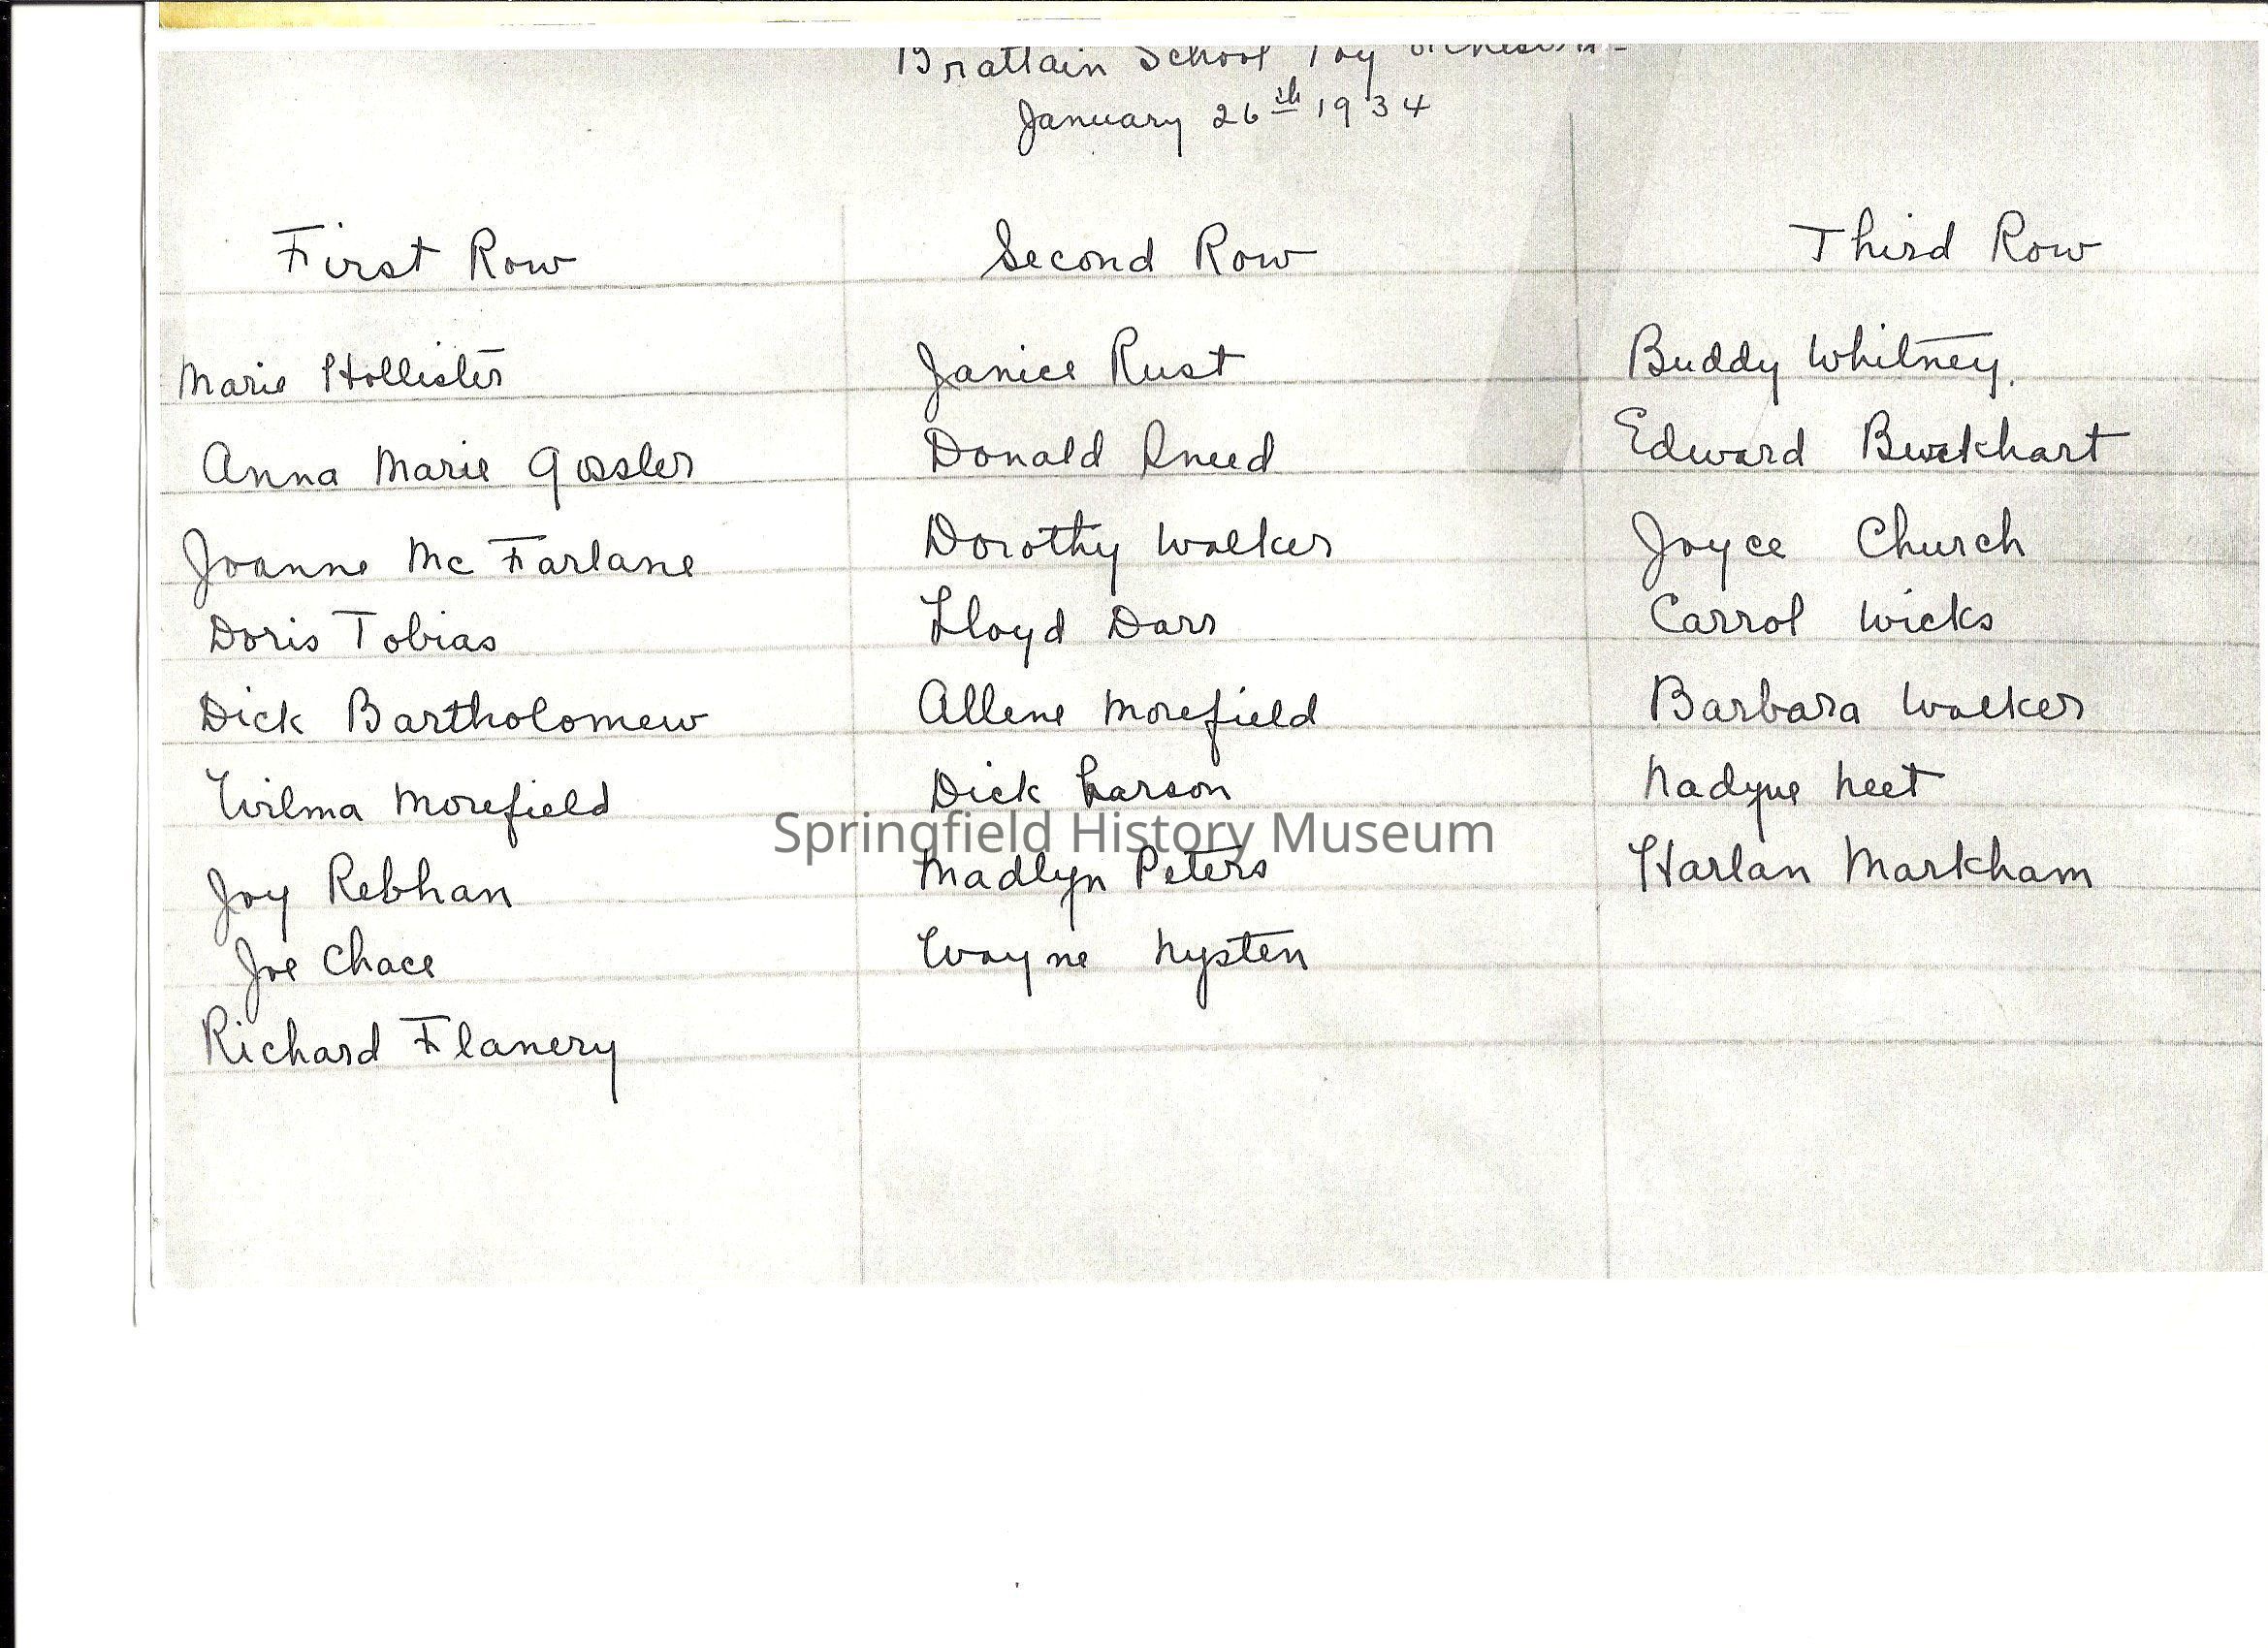 Brattain School Toy Orchestra -
January 26th 1934
First Row
Marie Hollister
Anna Marie Gossler
Joanne Mc Farlane
Doris Tobias
Dick Bartholomew
Wilma Morefield
Joy Rebhan
Joe Chace
Richard Flanery
Second Row
Janice Rust
Donald Sneed
Dorothy Walker
Lloyd Darr
Allene Morefield
Dick Larson
Madlyn Peters
Wayne Nysten
Third Row
Buddy Whitney.
Edward
Joyce Church
Carrol Wicks
Barbara Walker
Nadyne Neet
Harlan Markham
Springfield History Museum